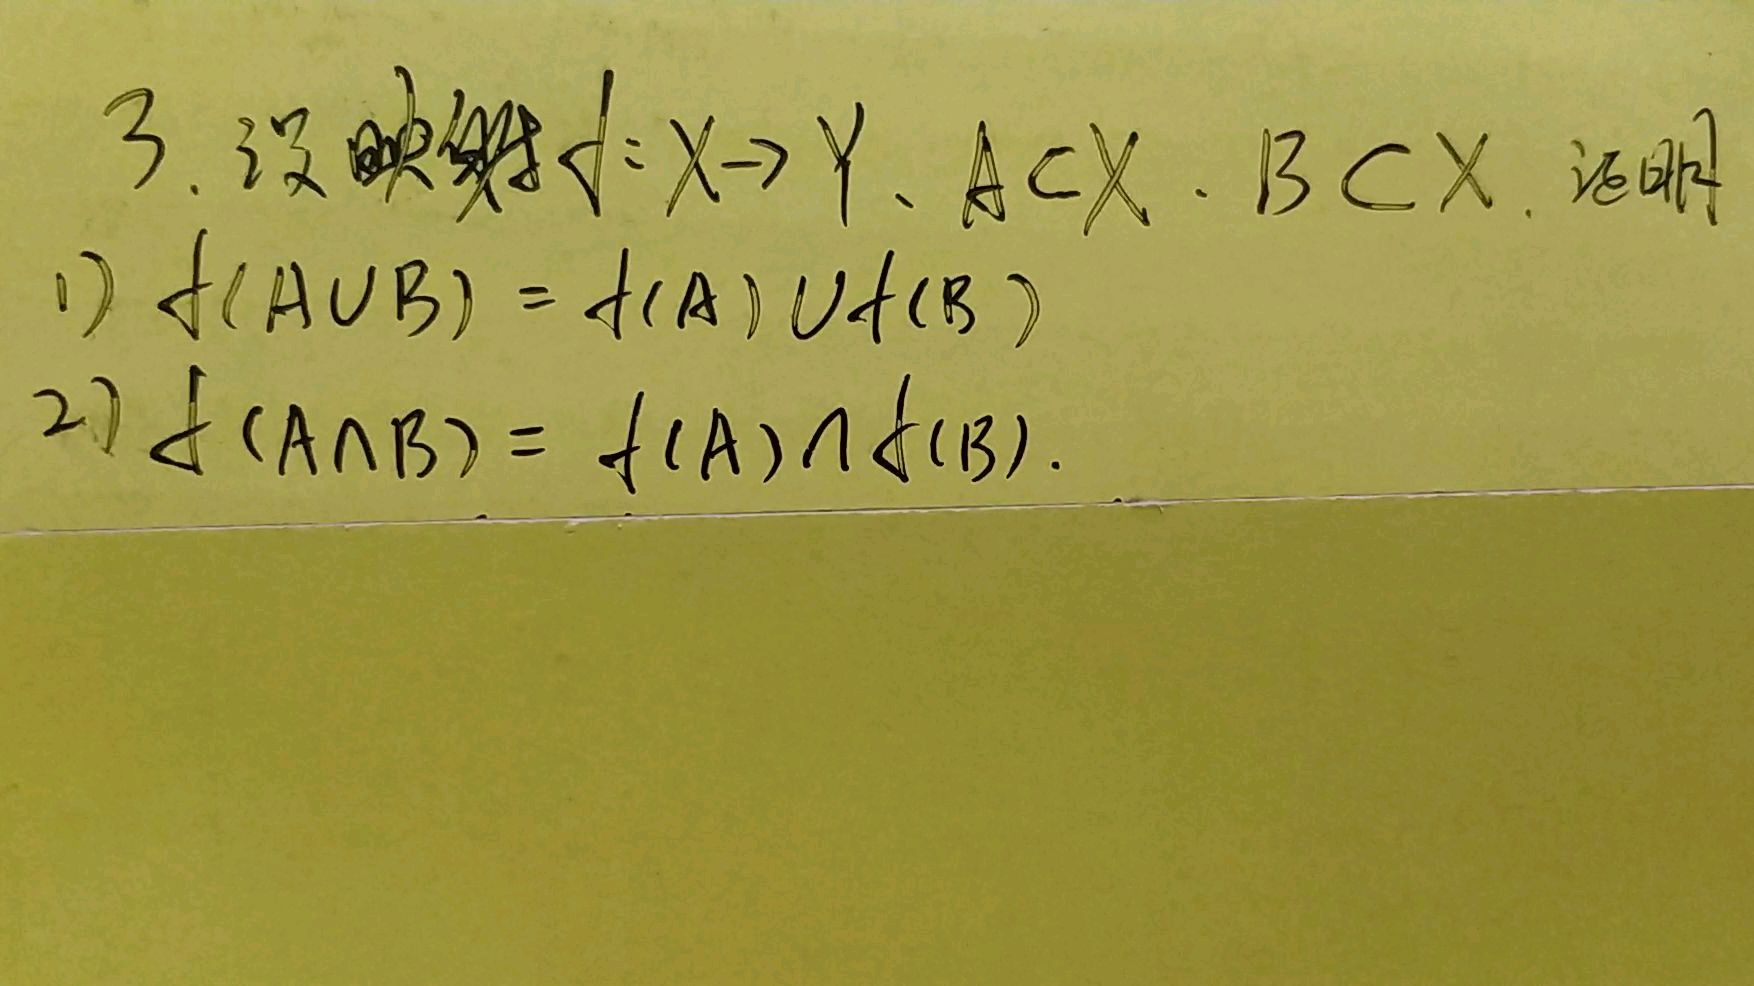 3. 设映射f:X→Y、A⊂X.B⊂X.证明
1) f(A∪B)=f(A)∪f(B)
2) f(A∩B)=f(A)∩f(B).